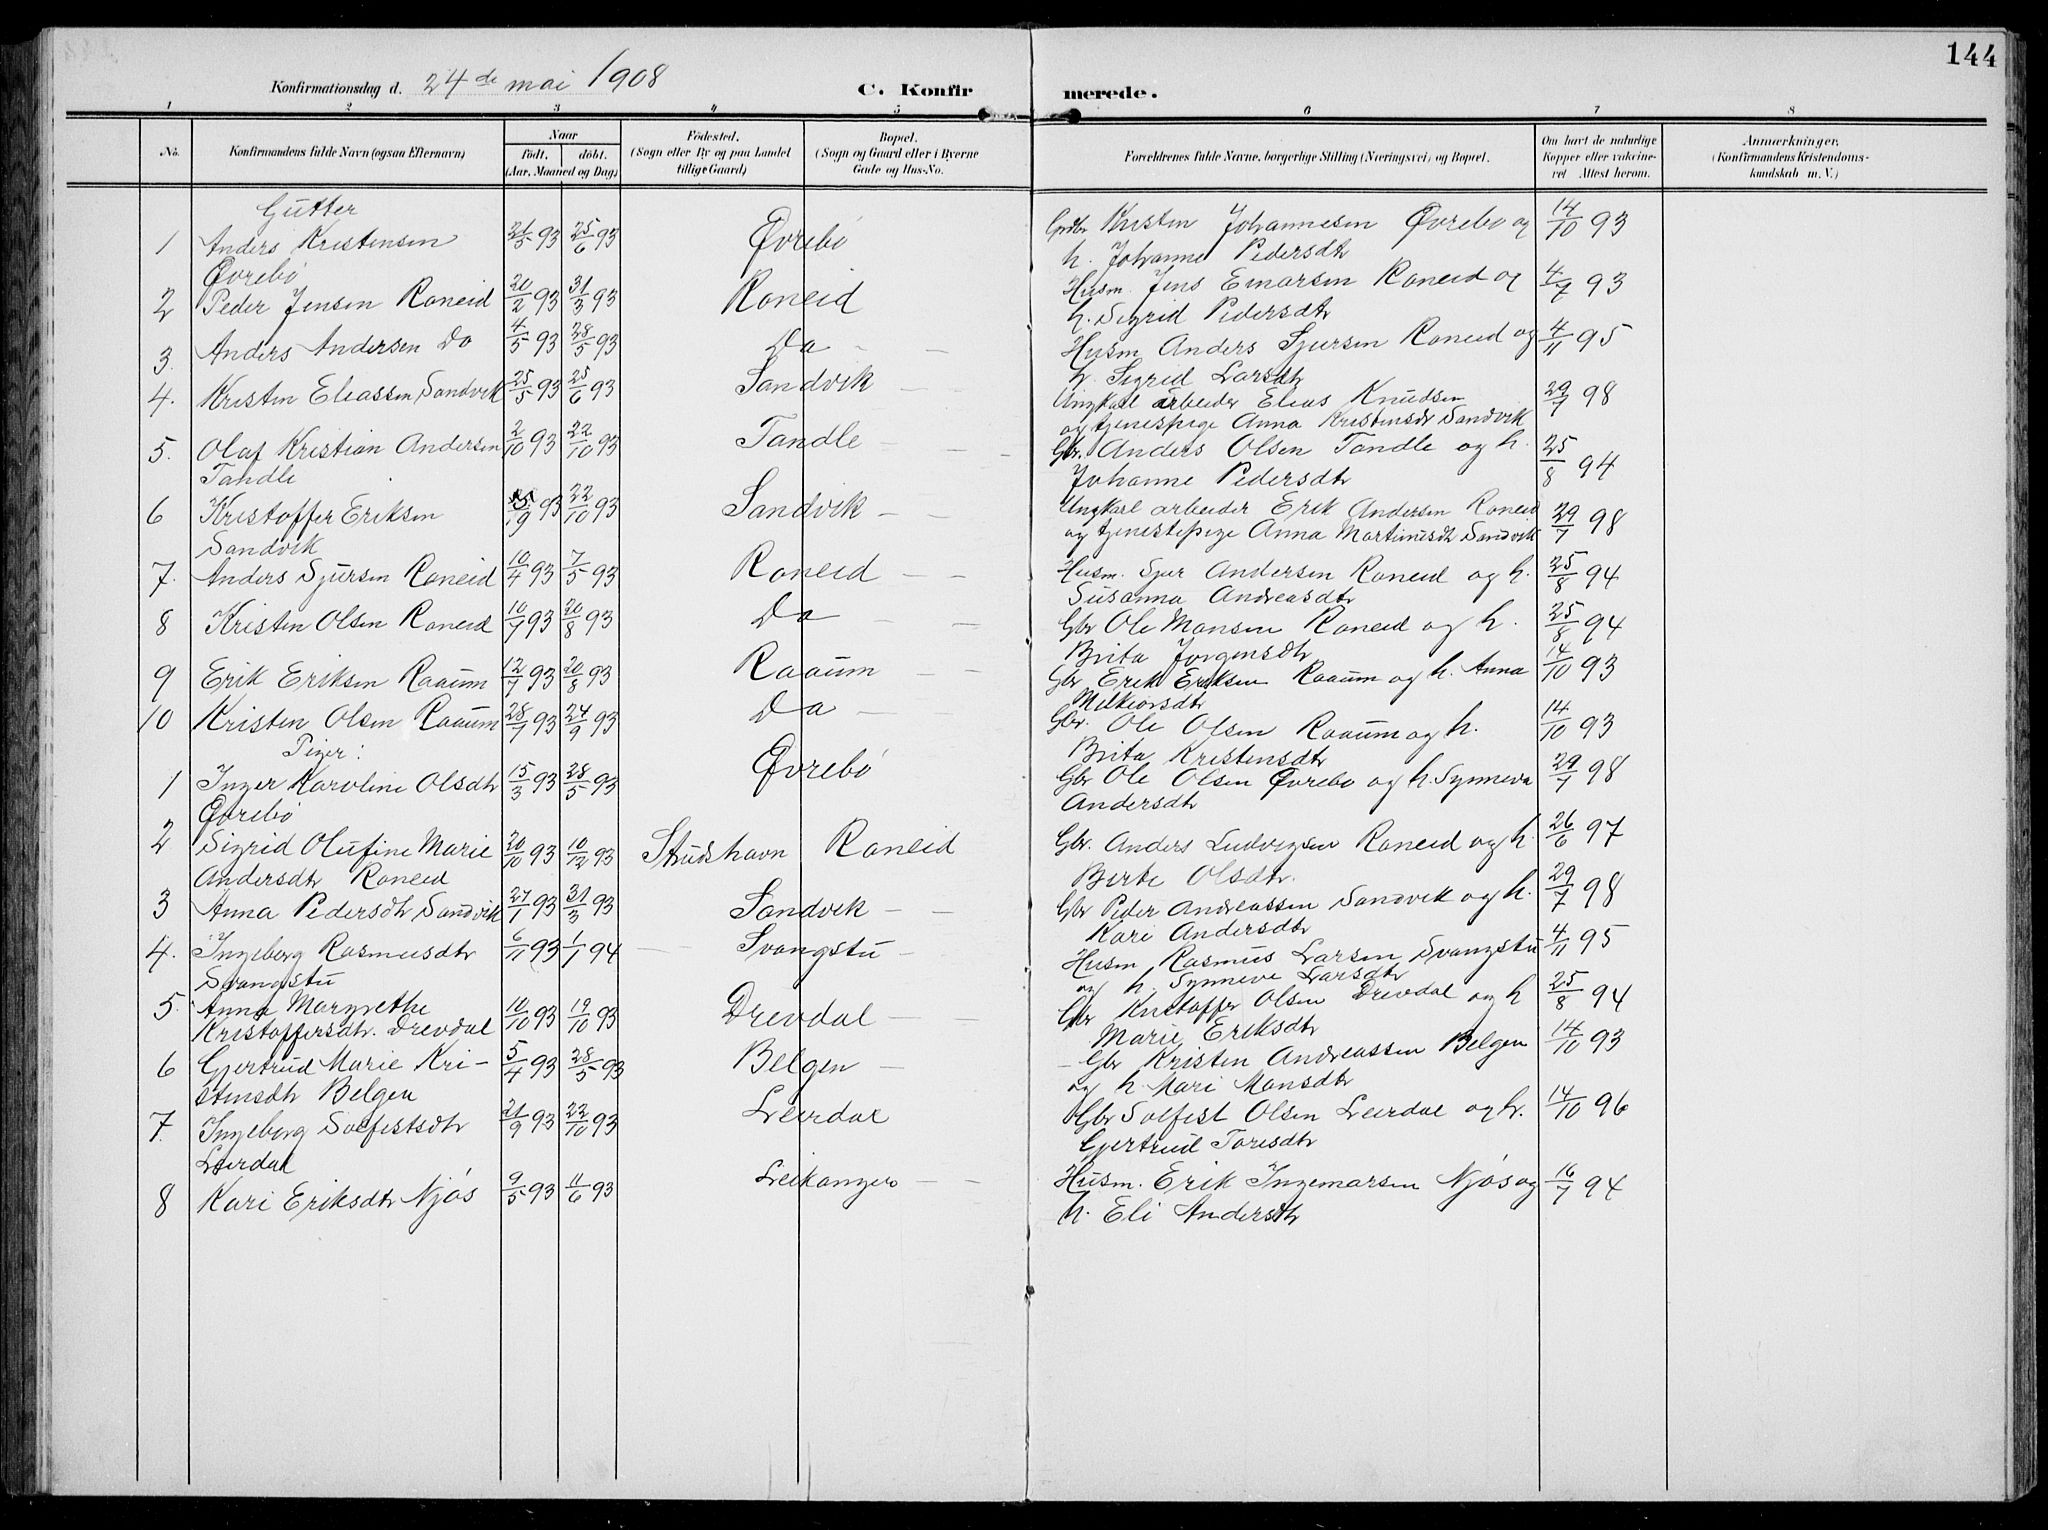 144
Konfirmationsdag d. 24de mai 1908
C. Konfirmerede.
1 2 3 4 5 6 7 8
No.
Konfirmandens fulde Navn (ogsaa Efternavn)
Naar
födt. döbt.
(Aar, Maaned og Dag)
Födested.
(Sogn eller By og paa Landet
tillige Gaard)
Bopæl.
(Sogn og Gaard eller i Byerne
Gade og Hus-No.
Forældrenes fulde Navne, borgerlige Stilling (Næringsvei) og Bopæl.
Om havt de naturlige
Kopper eller vakcine-
ret Attest herom.
Anmærkninger.
(Konfirmandens Kristendoms-
kundskab m. V.)
Gutter
1 Anders Kristensen 21/5 93 25/6 93 Øvrebö Kristen Johannesen Øvrebo og 14/10 93
Øvrebö h. Johanne Pedersdtr
2 Peder Jensen Roneid 20/2 93 31/3 93 Roneid Husm. Jens Emarsen Roneid og 4/7 93
h. Sigrid Pedersdtr
3. Anders Andersen Do 4/5 93 28/5 93 Do Husm Anders Sjursen Roneid og 4/11 95
h. Sigrid Larsdtr
4. Kristen Eliassen Sandvik 25/5 93 25/6 93 Sandvik Ungkarl arbeider Elias Knudsen 29/7 98
og tjenestepige Anna Kristensdtr Sandvik
5. Olaf Kristian Andersen 2/10 93 22/10 93 Tandle Gbr. Anders Olsen Tandle og h. 25/8 94
Tandle Johanne Pedersdtr
6 Kristoffer Eriksen 93 22/10 93 Sandvik Ungkarl arbeider Erik Andersen Roneid 29/7 98
Sandvik og tjenestepige Anna Martinusdtr Sandvik
7. Anders Sjursen Roneid 10/4 93 7/5 93 Roneid Husm. Sjur Andersen Roneid og h. 25/8 94
Susanna Andreasdtr
8 Kristen Olsen Roneid 10/7 93 20/8 93 Do Gbr Ole Monsen Roneid og h. 25/8 94
Brita Jorgensdtr
9 Erik Eriksen Raaum 12/7 93 20/8 93 Raaum Gbr Erik Eriksen Raaum og h. Anna 14/10 93
Melkiorsdtr
10 Kristen Olsen Raaum 28/7 93 24/9 93 Do Gbr. Ole Olsen Raaum og h. 14/10 93
Brita Kristensdtr
Piger:
1 Inger Karoline Olsdtr 15/3 93 28/5 93 Øvrebö Gbr Ole Olsen Øvrebo og h. Synneva 29/7 98
Øvrebö Andersdtr
2 Sigrid Olufine Marie 20/10 93 10/12 93 Strudshavn Roneid Gbr. Anders Ludvigsen Roneid og h. 26/6 97
Andersdtr Roneid Berte Olsdtr.
3 Anna Pedersdtr Sandvik 27/1 93 31/3 93 Sandvik Gbr Peder Andreassen Sandvik og h. 29/7 98
Kari Andersdtr
4. Ingeborg Rasmusdtr 6/11 93 1/1 94 Svangstu Husm Rasmus Larsen Svangstu 4/11 95
Svangstu og h. Synneve Larsdtr
5. Anna Margrethe 10/10 93 19/10 93 Drevdal Gbr Kristoffer Olsen Drevdal og h 25/8 94
Kristoffersdtr. Drevdal Marie Eriksdtr
6 Gjertrud Marie Kri- 5/4 93 28/5 93 Belgen Gbr Kristen Andreassen Belgen 14/10 93
stensdtr Belgen og h. Mari Monsdtr
7. Ingeborg Solfestsdtr 21/9 93 22/10 93 Leirdal Gbr Solfest Olsen Leirdal og h. 14/10 96
Leirdal Gjertrud Torisdtr
8 Kari Eriksdtr Njøs 9/5 93 11/6 93 Leikanger Husm. Erik Ingemarsen Njøs og 16/7 94
h. Eli Andersdtr